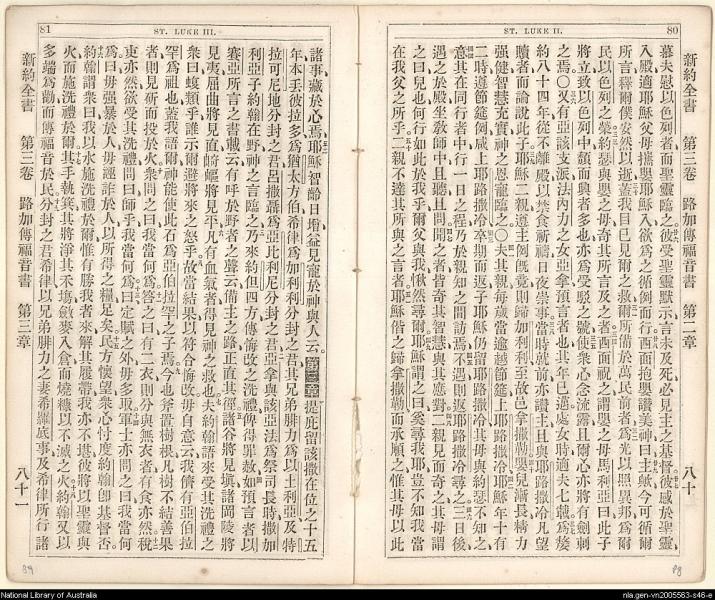 ST. LUKE II. 80
新約全書 第三卷 路加傳福音書 第二章 八十
慕夫慰以色列者而聖靈臨之彼受聖靈默示言未及死必見主之基督彼感於聖靈
入殿適耶穌父母攜嬰耶穌入欲爲之循例而行西面抱嬰讚美神曰主歟今可循爾
所言釋爾僕安然以逝蓋我目已見爾之救爾所備於萬民前者爲光以照異邦爲爾
民以色列之榮約瑟與嬰之母奇其所言及之者西面祝之謂嬰之母馬利亞曰此子
將立致以色列中頽而興者多也亦爲受駁之號使衆心念流露且爾心亦將有劍刺
之焉〇又有亞該支派法內力之女亞拿預言者也其年已邁處女時適夫七載爲嫠
約八十四年從不離殿以禁食祈禱日夜崇事當時就前亦讚主且與耶路撒冷凡望
贖者而論說此子耶穌二親遵主例既竟則歸加利利至故邑拿撒勒嬰兒漸長精力
強健智慧充實神之恩寵臨之〇夫其親每歲當逾越節筵上耶路撒冷耶穌年十有
二時遵節筵例咸上耶路撒冷卒期而返子耶穌仍留耶路撒冷其母與約瑟不知之
意其在同行者中行一日之程乃於親知之間訪焉不遇則返耶路撒冷尋之三日後
遇之於殿坐教師中且聽且問聞之者皆奇其智慧與其應對二親見而奇之其母謂
之曰兒也何行如此於我乎爾父與我愀然尋爾耶穌謂之曰奚尋我耶豈不知我當
在我父之所乎二親不達其所與之言者耶穌偕之歸拿撒勒而承順之惟其母以此
81 ST. LUKE III.
諸事藏於心焉耶穌智齡日增益見寵於神與人云第三章提庇留該撒在位之十五
年本丟彼拉多爲猶太方伯希律爲加利利分封之君其兄弟腓力爲以土利亞及特
拉可尼地分封之君呂撒聶爲亞比利尼分封之君亞拿與該亞法爲祭司長時撒加
利亞子約翰在野神之言臨之乃來約但四方傳悔改之洗禮俾得罪赦如預言者以
賽亞所言之書載云有呼於野者之聲云備主之路正直其徑諸谷將見填諸岡陵將
見夷屈曲將見直崎嶇將見平凡有血氣者得見神之救也夫約翰語來受其洗禮之
衆曰蝮類乎誰示爾避將來之怒乎故當結果以符合悔改毋自意云我儕有亞伯拉
罕爲祖也蓋我語爾神能使此石爲亞伯拉罕之子焉今也斧置樹根凡樹不結善果
者則見斫而投於火衆問之曰我當何爲答之曰有二衣則分與無衣者有食亦然稅
吏亦然欲受其洗禮問曰師乎我當何爲曰定賦之外毋多取軍士亦問之曰我當何
爲曰毋強暴於人毋誣詐於人以所得之糧足矣民方懷望衆心忖度約翰卽基督否
約翰謂衆曰我以水施洗禮於爾惟有勝我者來解其履帶我亦不堪彼將以聖靈與
火而施洗禮於爾其手執箕其將淨其禾塲斂麥入倉而燒穅以不滅之火約翰又以
多端爲勸而傳福音於民分封之君希律以兄弟腓力之妻希羅底事及希律所行諸
新約全書 第三卷 路加傳福音書 第三章 八十一
National Library of Australia
nla.gen-vn2005563-s46-e